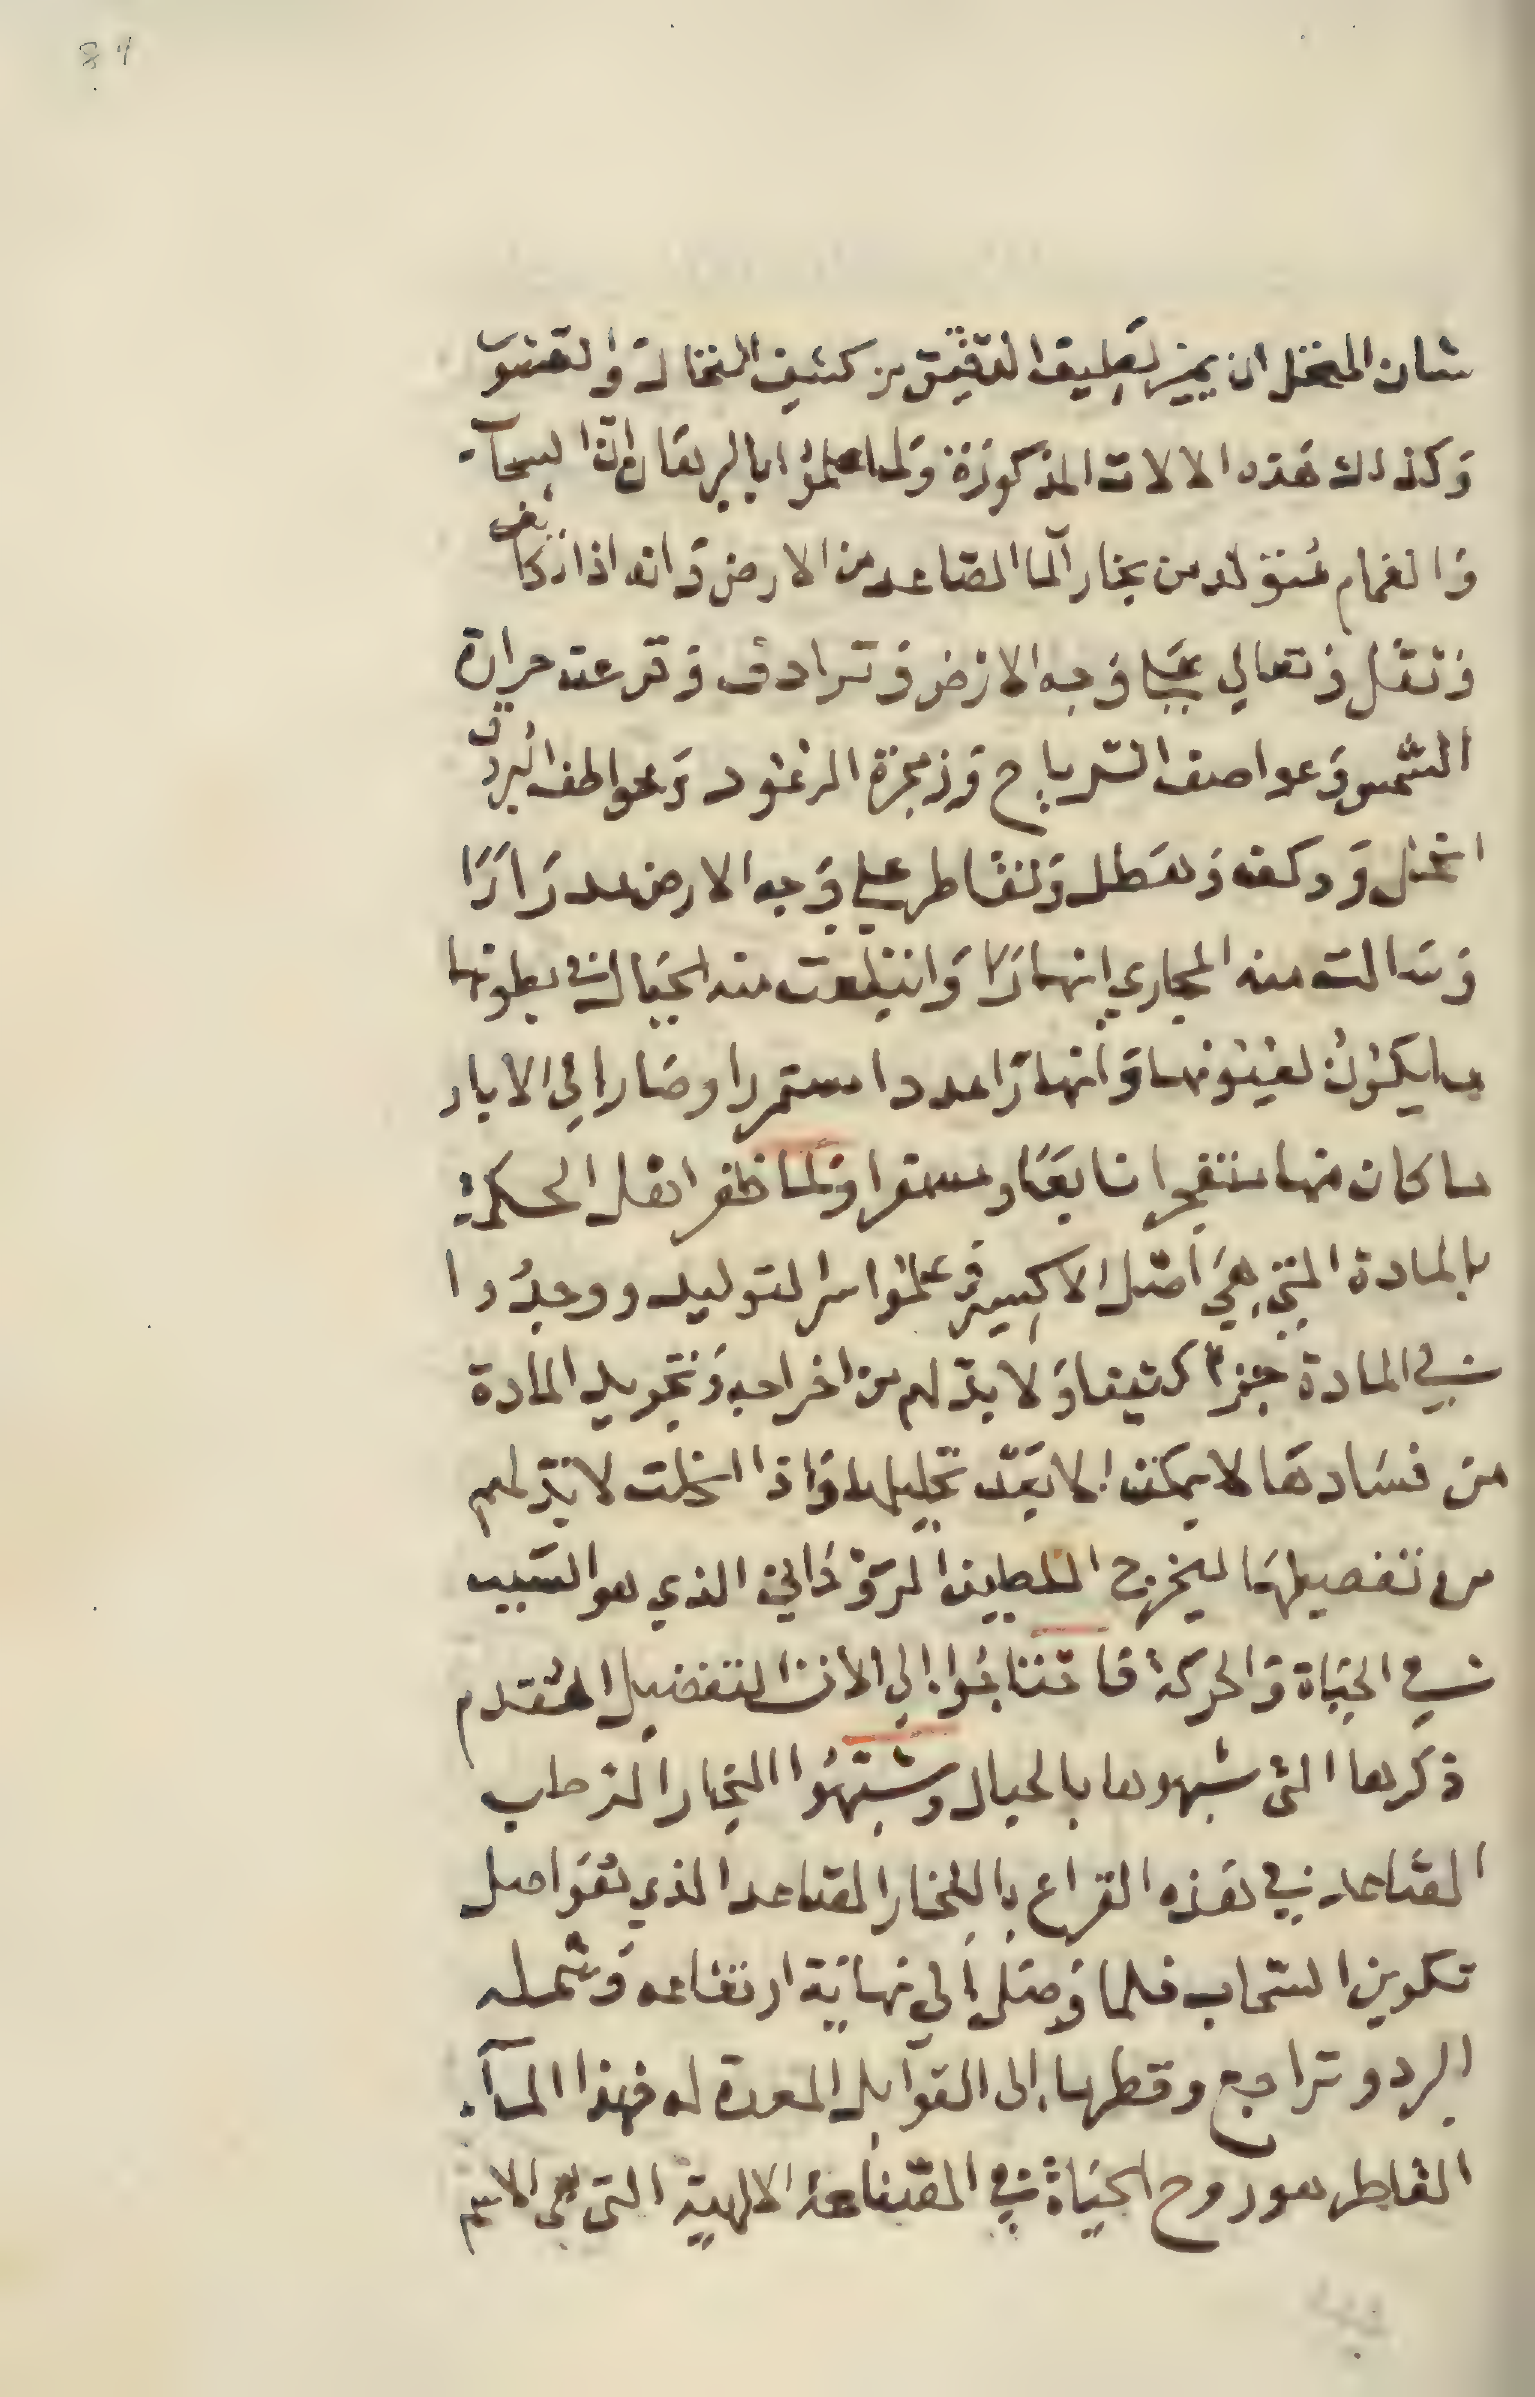 84
شان المنخل ان يميز لطيف الدقيق من كثيف النخالة والقشور
وكذلك هذه الالات المذكورة ولما علموا بالبرهان ان السحاب
والغمام متولد من بخار الما الصاعد من الارض وانه اذا تكاثف
وثقل وتعالي علي وجه الارض وترادف وقرعته حرارة
الشمس وعواصف الرياح وزمجرة الرعود وعواطف البروق
انحل ووكف وهطل وتقاطر علي وجه الارض مدرارا
وسالت منه المجاري انهارا وابتلعت منه الجبال في بطونها
ما يكون لعيونها وانهارا مددا مستمرا وصار الي الابار
ما كان منها منفجرا نابعا ومستقرا ولما ظفر اهل الحكمة
بالمادة التي هي اصل الاكسير وعلموا سر التوليد ووجدوا
في المادة جزءا كثيفا ولا بد لهم من اخراجه وتجويد المادة
من فسادها لا يمكن الا بعد تحليلها واذا انحلت لا بد لهم
من تفصيلها ليخرج اللطيف الروحاني الذي هو السبب
في الحياة والحركة فاحتاجوا الي الات التفصيل المتقدم
ذكرها التي شبهوها بالجبال وشبهوا البخار الرطب
الصاعد في هذه القراع بالبخار الصاعد الذي هو اصل
تكوين السحاب فلما وصل الي نهاية ارتفاعه وشمله
البرد وتراجع وقطرها الى القوابل المعدة له فهذا الماء
القاطر هو روح الحياة في الصناعة الالهية التي هي الاسم